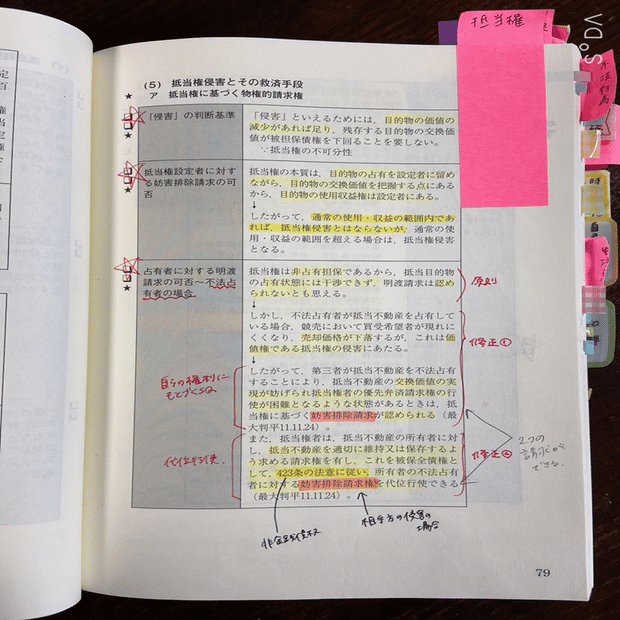 抵当権
(5) 抵当権侵害とその救済手段
ア 抵当権に基づく物権的請求権
「侵害」の判断基準
「侵害」といえるためには、目的物の価値の
減少があれば足り、残存する目的物の交換価
値が被担保債権を下回ることを要しない。
∵抵当権の不可分性
抵当権設定者に対す
る妨害排除請求の可
否
抵当権の本質は、目的物の占有を設定者に留め
ながら、目的物の交換価値を把握する点にある
から、目的物の使用収益権は設定者にある。
↓
したがって、通常の使用・収益の範囲内であ
れば、抵当権侵害とはならないが、通常の使
用・収益の範囲を超える場合は、抵当権侵害
となる。
占有者に対する明渡
請求の可否～不法占
有者の場合
抵当権は非占有担保であるから、抵当目的物
の占有状態には干渉できず、明渡請求は認め
られないとも思える。
原則
↓
しかし、不法占有者が抵当不動産を占有して
いる場合、競売において買受希望者が現れに
くくなり、売却価格が下落するが、これは価
値権である抵当権の侵害にあたる。
修正①
↓
したがって、第三者が抵当不動産を不法占有
することにより、抵当不動産の交換価値の実
現が妨げられ抵当権者の優先弁済請求権の行
使が困難となるような状態があるときは、抵
当権に基づく妨害排除請求が認められる（最
大判平11.11.24）。
自らの権利に
また、抵当権者は、抵当不動産の所有者に対
し、抵当不動産を適切に維持又は保存するよ
う求める請求権を有し、これを被保全債権と
して、423条の法意に従い、所有者の不法占有
者に対する妨害排除請求権を代位行使できる
（最大判平11.11.24）。
代位行使
修正②
2つの
請求が
できる
非金銭債権
相手方の侵害の
場合
79